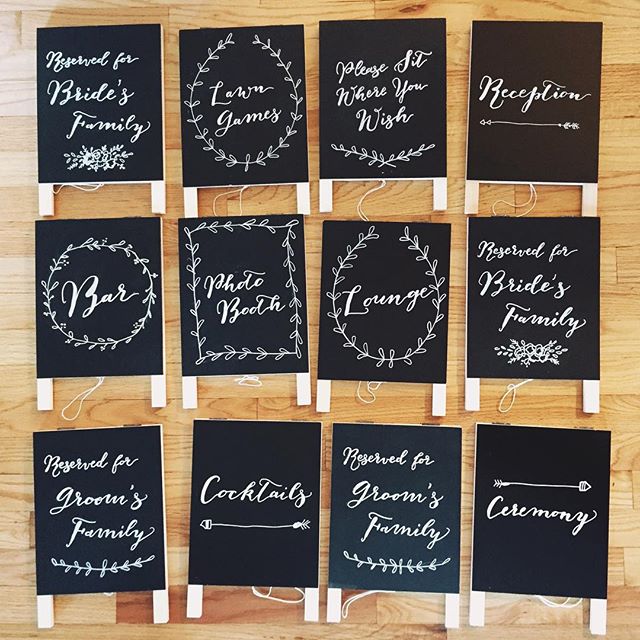 Reserved for
Bride's
Family
Lawn
Games
Please Sit
Where You
Wish
Reception
Bar
Photo
Booth
Lounge
Reserved for
Bride's
Family
Reserved for
Groom's
Family
Cocktails
Reserved for
Groom's
Family
Ceremony